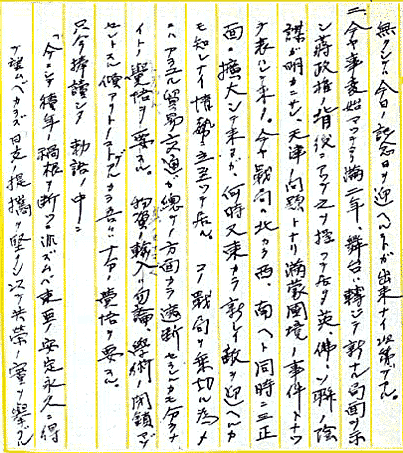 無クシテ今日ノ記念日ヲ迎ヘルヿガ出来ナイ次第デアル。
二、今ヤ事変始マツテヨリ満二年、舞台ハ転ジテ新ナル局面ヲ示
シ蒋政権ノ背後ニアツテ之ヲ操ツテ居ル英、佛、ソ聯ノ陰
謀ガ明カニナリ、天津ノ問題トナリ満蒙国境ノ事件トナツ
テ表ハレテ来タ。今ヤ戦局ハ北カラ西、南ヘト同時ニ三正
面ニ拡大シテ来タガ、何時又東カラ新シイ敵ヲ迎ヘルカ
モ知レナイ情勢ニ立至ツテ居ル。コノ戦局ヲ乗切ル為メ
ニハアラユル貿易交通ガ総ゆる方面カラ遮断セラルルモ分ラナ
イト覚悟ヲ要スル。物資ノ輸入ハ勿論、学術ノ閉鎖マデ
セントスル傾アリトノコトデアルカラ吾々ハ十分ノ覚悟ヲ要スル。
只今捧読シタ勅語ノ中ニ
「今ニシテ積年ノ禍根ヲ断ツニ非ズムバ東亜ノ安定永久ニ得
テ望ムベカラズ日支ノ提携ヲ堅クシ以テ共栄ノ実ヲ挙グル